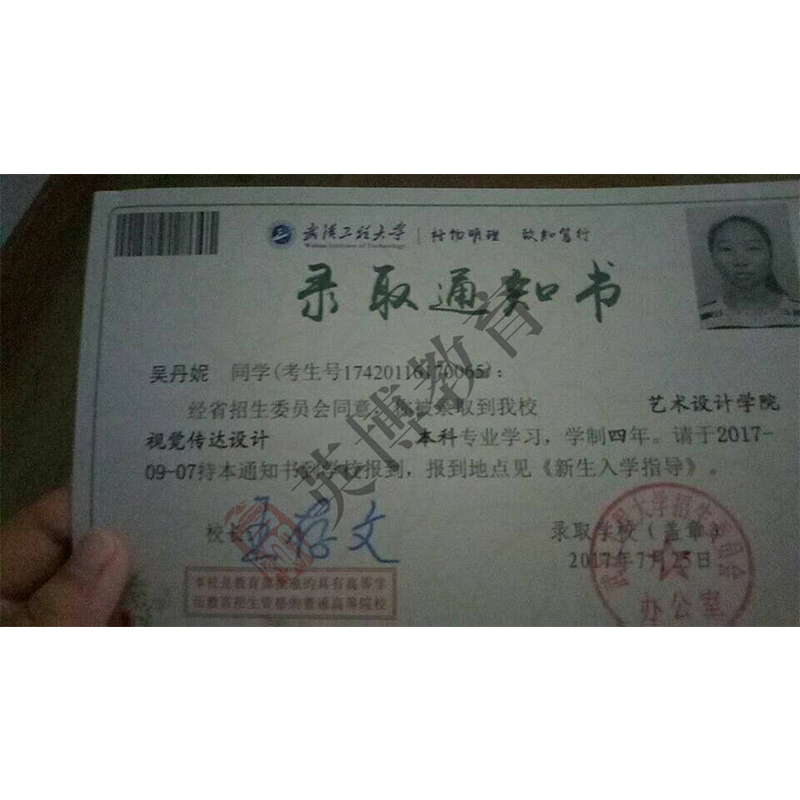 武汉工程大学 格物明理 致知笃行
Wuhan Institute of Technology
录取通知书
吴丹妮 同学(考生号17420116170065):
经省招生委员会同意,你被录取到我校 艺术设计学院
视觉传达设计 本科专业学习,学制四年。请于2017-
09-07持本通知书到学校报到,报到地点见《新生入学指导》。
校长 王存文
录取学校(盖章)
2017年7月25日
本校是教育部批准的具有高等学
历教育招生资格的普通高等院校
武汉工程大学招生委员会
办公室
英博教育